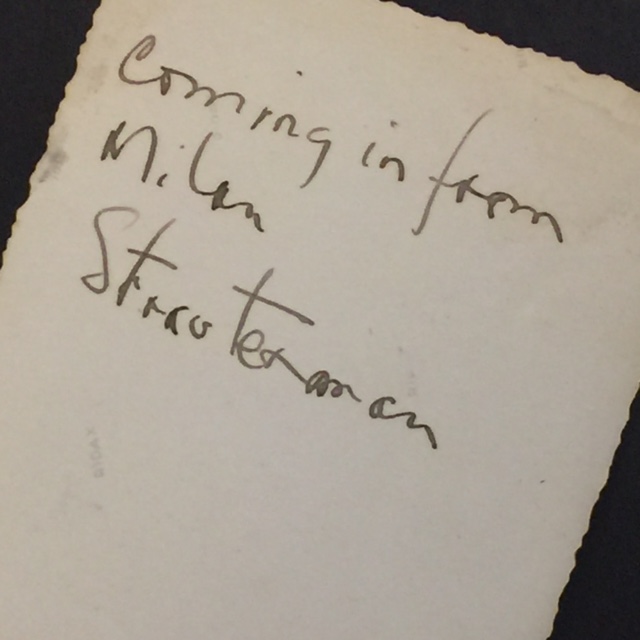 Coming in from
Milan
Strauterman